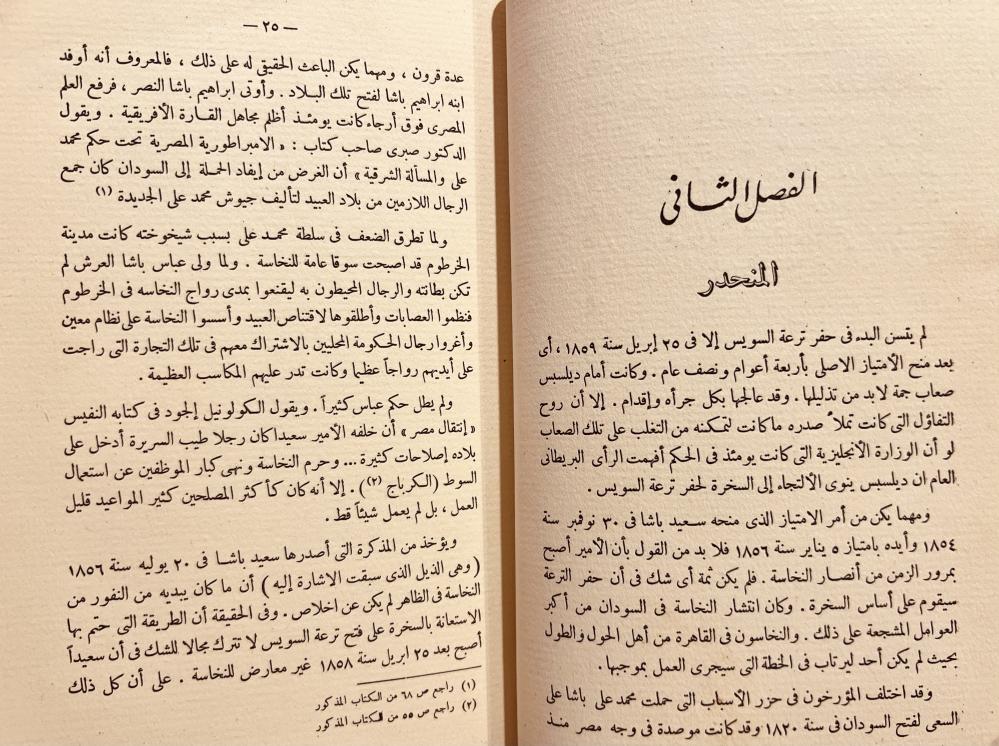 الفصل الثانى
المنحدر
لم يتسن البدء فى حفر ترعة السويس إلا فى ٢٥ إبريل سنة ١٨٥٩ ، أى
بعد منح الأمتياز الاصلى بأربعة أعوام ونصف عام . وكانت أمام ديلسبس
صعاب جمة لابد من تذليلها . وقد عالجها بكل جرأه وإقدام . إلا أن روح
التفاؤل التى كانت تملأ صدره ما كانت لتمكنه من التغلب على تلك الصعاب
لو أن الوزارة الأنجليزية التى كانت يومئذ فى الحكم أفهمت الرأى البريطانى
العام ان ديلسبس ينوى الألتجاء إلى السخرة لحفر ترعة السويس .
ومهما يكن من أمر الامتياز الذى منحه سعيد باشا فى ٣٠ نوفمبر سنة
١٨٥٤ وأيده بامتياز ٥ يناير سنة ١٨٥٦ فلا بد من القول بأن الأمير أصبح
بمرور الزمن من أنصار النخاسة . فلم يكن ثمة أى شك فى أن حفر الترعة
سيقوم على أساس السخرة . وكان انتشار النخاسة فى السودان من أكبر
العوامل المشجعة على ذلك . والنخاسون فى القاهرة من أهل الحول والطول
بحيث لم يكن أحد ليرتاب فى الخطة التى سيجرى العمل بموجبها .
وقد اختلف المؤرخون فى حزر الاسباب التى حملت محمد على باشا على
السعى لفتح السودان فى سنة ١٨٢٠ وقد كانت موصدة فى وجه مصر منذ
— ٢٥ —
عدة قرون ، ومهما يكن الباعث الحقيقى له على ذلك ، فالمعروف أنه أوفد
ابنه ابراهيم باشا لفتح تلك البلاد . وأوتى ابراهيم باشا النصر ، فرفع العلم
المصرى فوق أرجاء كانت يومئذ أظلم مجاهل القارة الأفريقية . ويقول
الدكتور صبرى صاحب كتاب : « الامبراطورية المصرية تحت حكم محمد
على والمسألة الشرقية » أن الغرض من إيفاد الحملة إلى السودان كان جمع
الرجال اللازمين من بلاد العبيد لتأليف جيوش محمد على الجديدة (١)
ولما تطرق الضعف فى سلطة محمد على بسبب شيخوخته كانت مدينة
الخرطوم قد اصبحت سوقا عامة للنخاسة . ولما ولى عباس باشا العرش لم
تكن بطانته والرجال المحيطون به ليقنعوا بمدى رواج النخاسه فى الخرطوم
فنظموا العصابات وأطلقوها لاقتناص العبيد وأسسوا النخاسة على نظام معين
وأغروا رجال الحكومة المحليين بالاشتراك معهم فى تلك التجارة التى راجت
على أيديهم رواجاً عظيما وكانت تدر عليهم المكاسب العظيمة .
ولم يطل حكم عباس كثيراً . ويقول الكولونيل إلجود فى كتابه النفيس
« إنتقال مصر » أن خلفه الأمير سعيدا كان رجلا طيب السريرة أدخل على
بلاده إصلاحات كثيرة ... وحرم النخاسة ونهى كبار الموظفين عن استعمال
السوط (الكرباج (٢)) . إلا أنه كان كأكثر المصلحين كثير المواعيد قليل
العمل ، بل لم يعمل شيئاً قط .
ويؤخذ من المذكرة التى أصدرها سعيد باشا فى ٢٠ يوليه سنة ١٨٥٦
( وهى الذيل الذى سبقت الاشارة إليه ) أن ما كان يبديه من النفور من
النخاسة فى الظاهر لم يكن عن اخلاص . وفى الحقيقة أن الطريقة التى حتم بها
الاستعانة بالسخرة على فتح ترعة السويس لا تترك مجالا للشك فى أن سعيداً
أصبح بعد ٢٥ ابريل سنة ١٨٥٨ غير معارض للنخاسة . على أن كل ذلك
(١) راجع ص ٦٨ من الكتاب المذكور
(٢) راجع ص ٥٥ من الكتاب المذكور